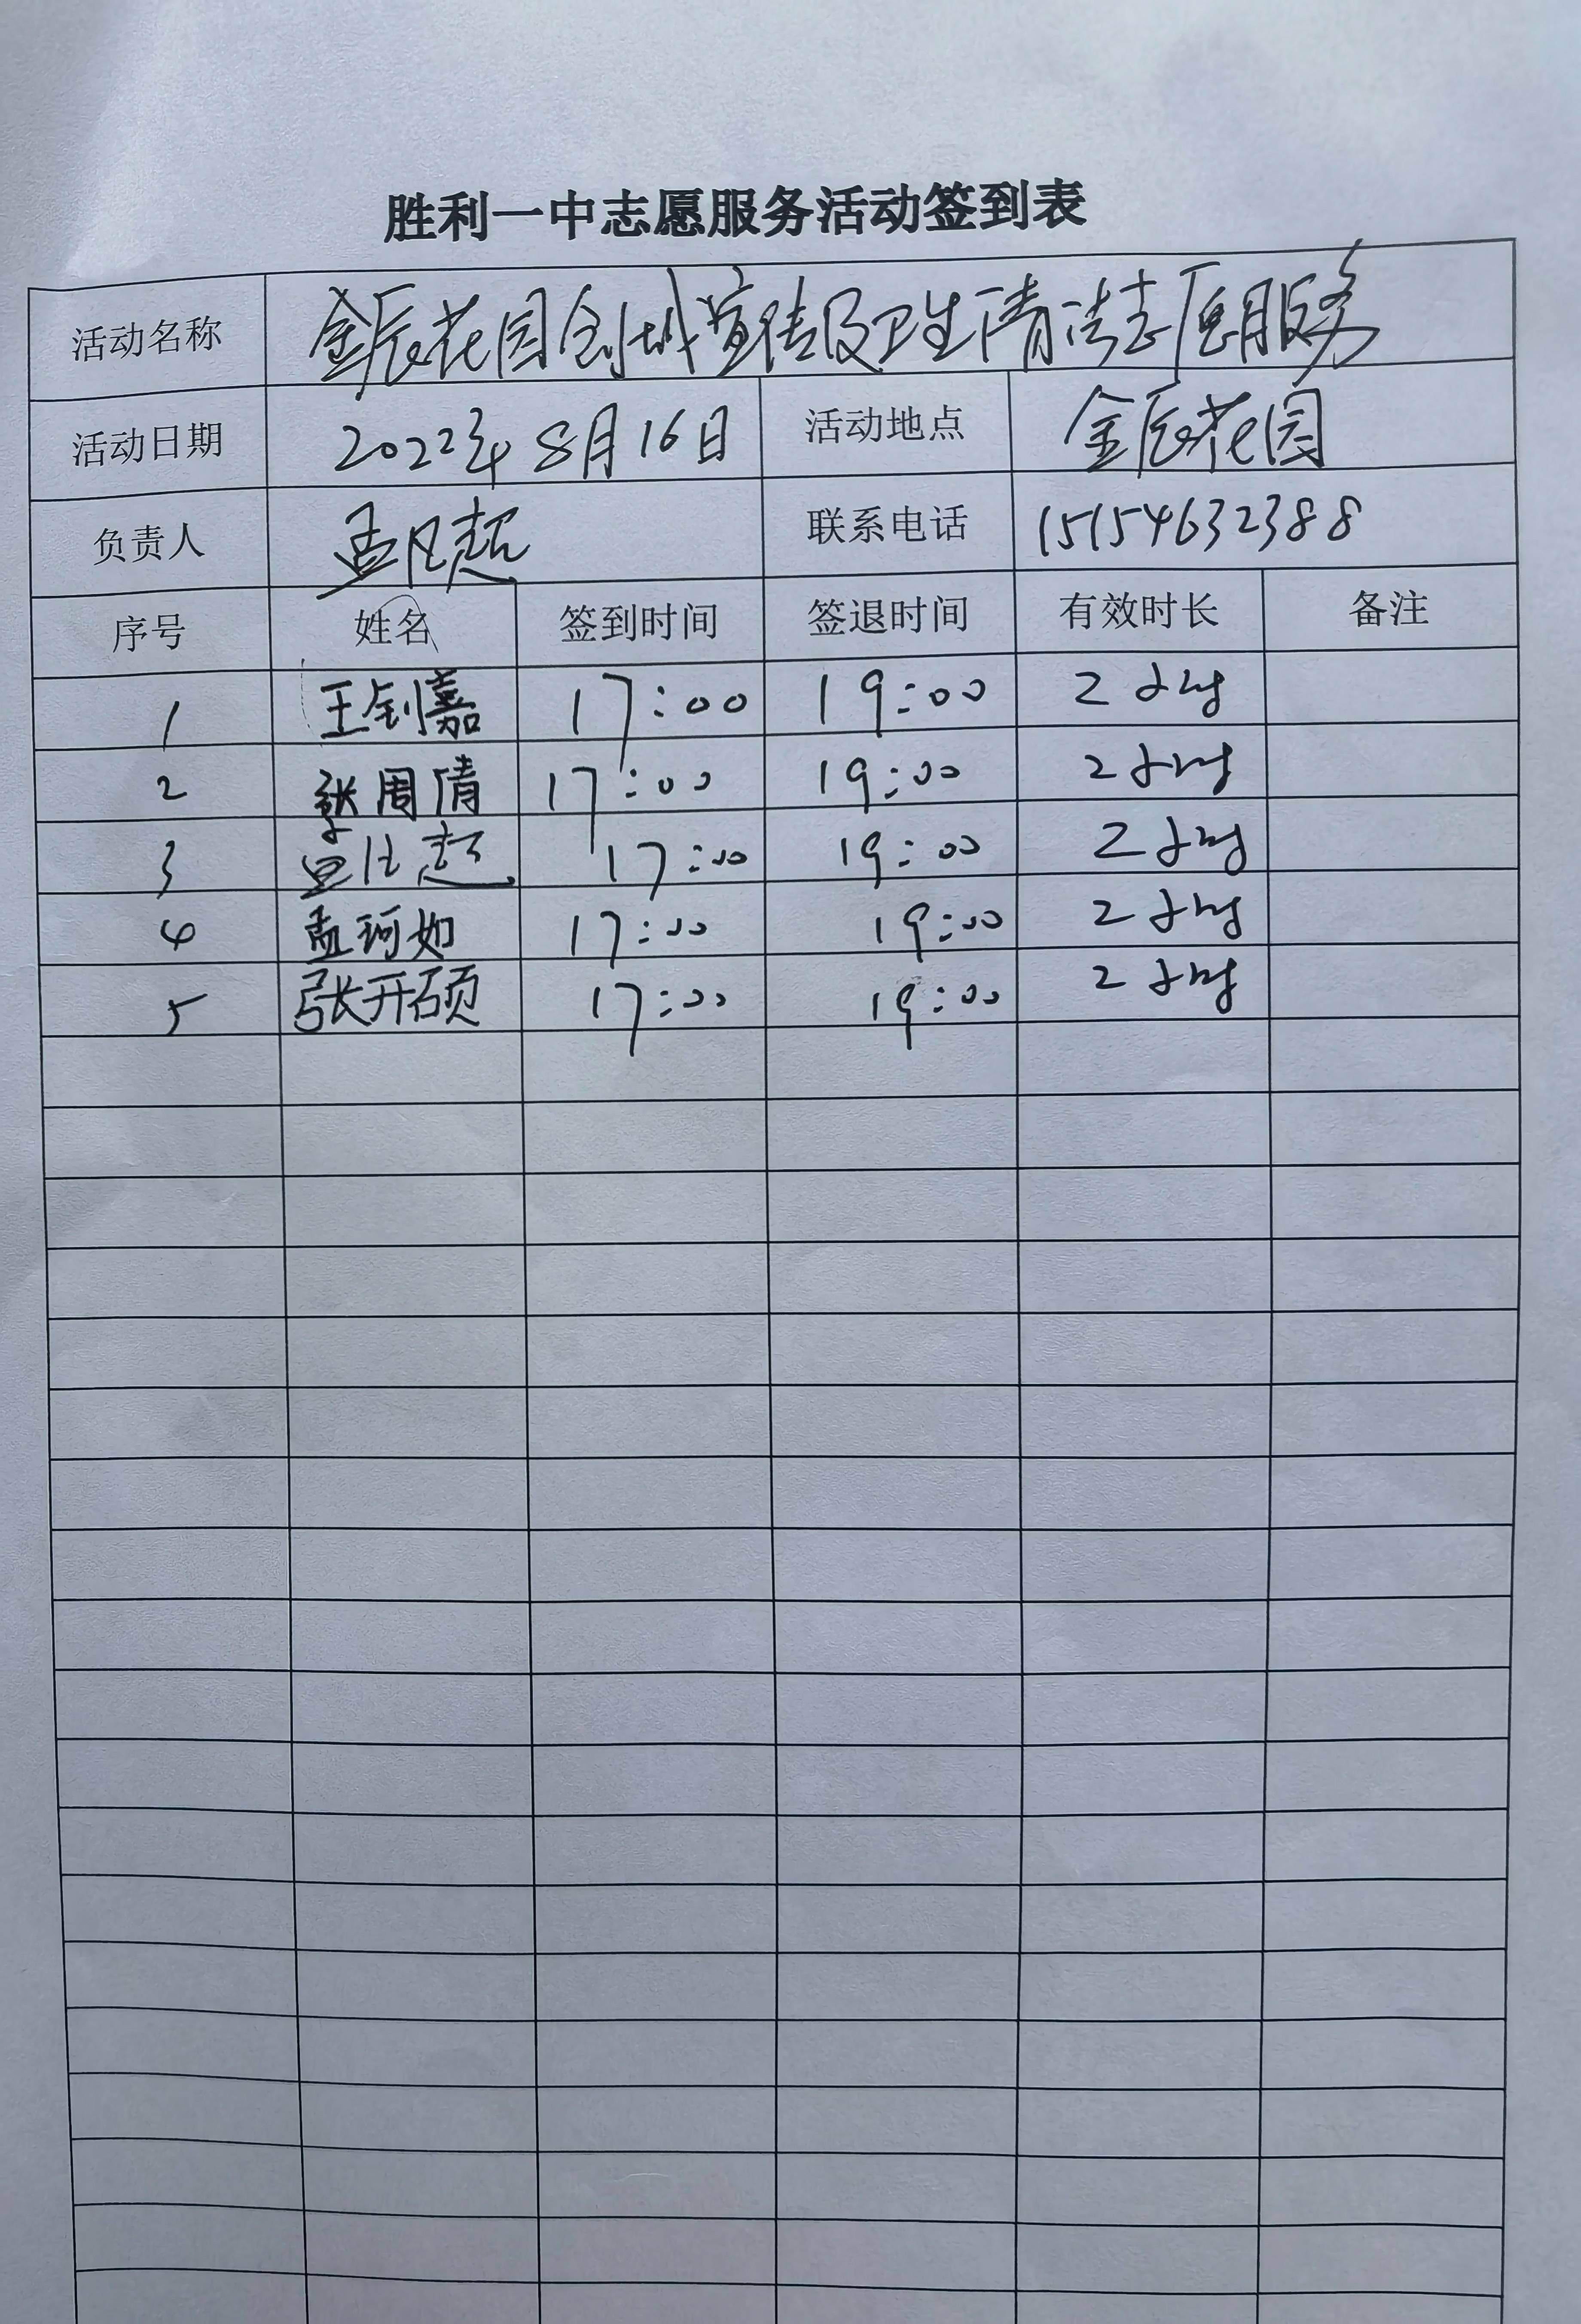 胜利一中志愿服务活动签到表
活动名称 金辰花园创城宣传及卫生清洁志愿服务
活动日期 2022年8月16日 活动地点 金辰花园
负责人 孟凡超 联系电话 15154632388
序号 姓名 签到时间 签退时间 有效时长 备注
1 王钊嘉 17:00 19:00 2小时
2 张周倩 17:00 19:00 2小时
3 17:00 19:00 2小时
4 孟珂如 17:00 19:00 2小时
5 张开硕 17:00 19:00 2小时